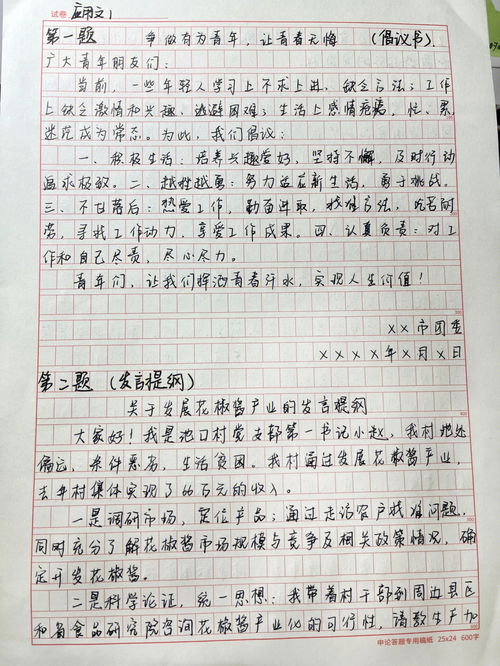 试卷: 应用文1
第一题 争做有为青年,让青春无悔 (倡议书).
广大青年朋友们:
当前,一些年轻人学习上不求上进,缺乏方法;工作
上缺乏激情和兴趣,逃避困难;生活上感情疮痍,忙、累、
迷茫成为常态。为此,我们倡议:
一、积极生活:培养兴趣爱好,坚持不懈,及时行动
追求极致。二、越挫越勇:努力适应新生活,勇于挑战。
三、不甘落后:热爱工作,勤奋进取,找准方法,吃苦耐
劳,寻找工作动力,享受工作成果。四、认真负责:对工
作和自己尽责,尽心尽力。
青年们,让我们挥洒青春汗水,实现人生价值!
300
××市团委
××××年×月×日
第二题 (发言提纲)
400
关于发展花椒酱产业的发言提纲
大家好!我是池口村党支部第一书记小赵,我村地处
偏远,条件恶劣,生活贫困。我村通过发展花椒酱产业,
去年村集体实现了66万元的收入。
一是调研市场,定位产品:通过走访农户找准问题,
500
同时充分了解花椒酱市场规模与竞争及相关政策情况,确
定开发花椒酱。
二是科学论证,统一思想:我带着村干部到周边县区
600
和省食品研究院咨询花椒酱产业化的可行性,请教生产加
申论答题专用稿纸 25x24 600字